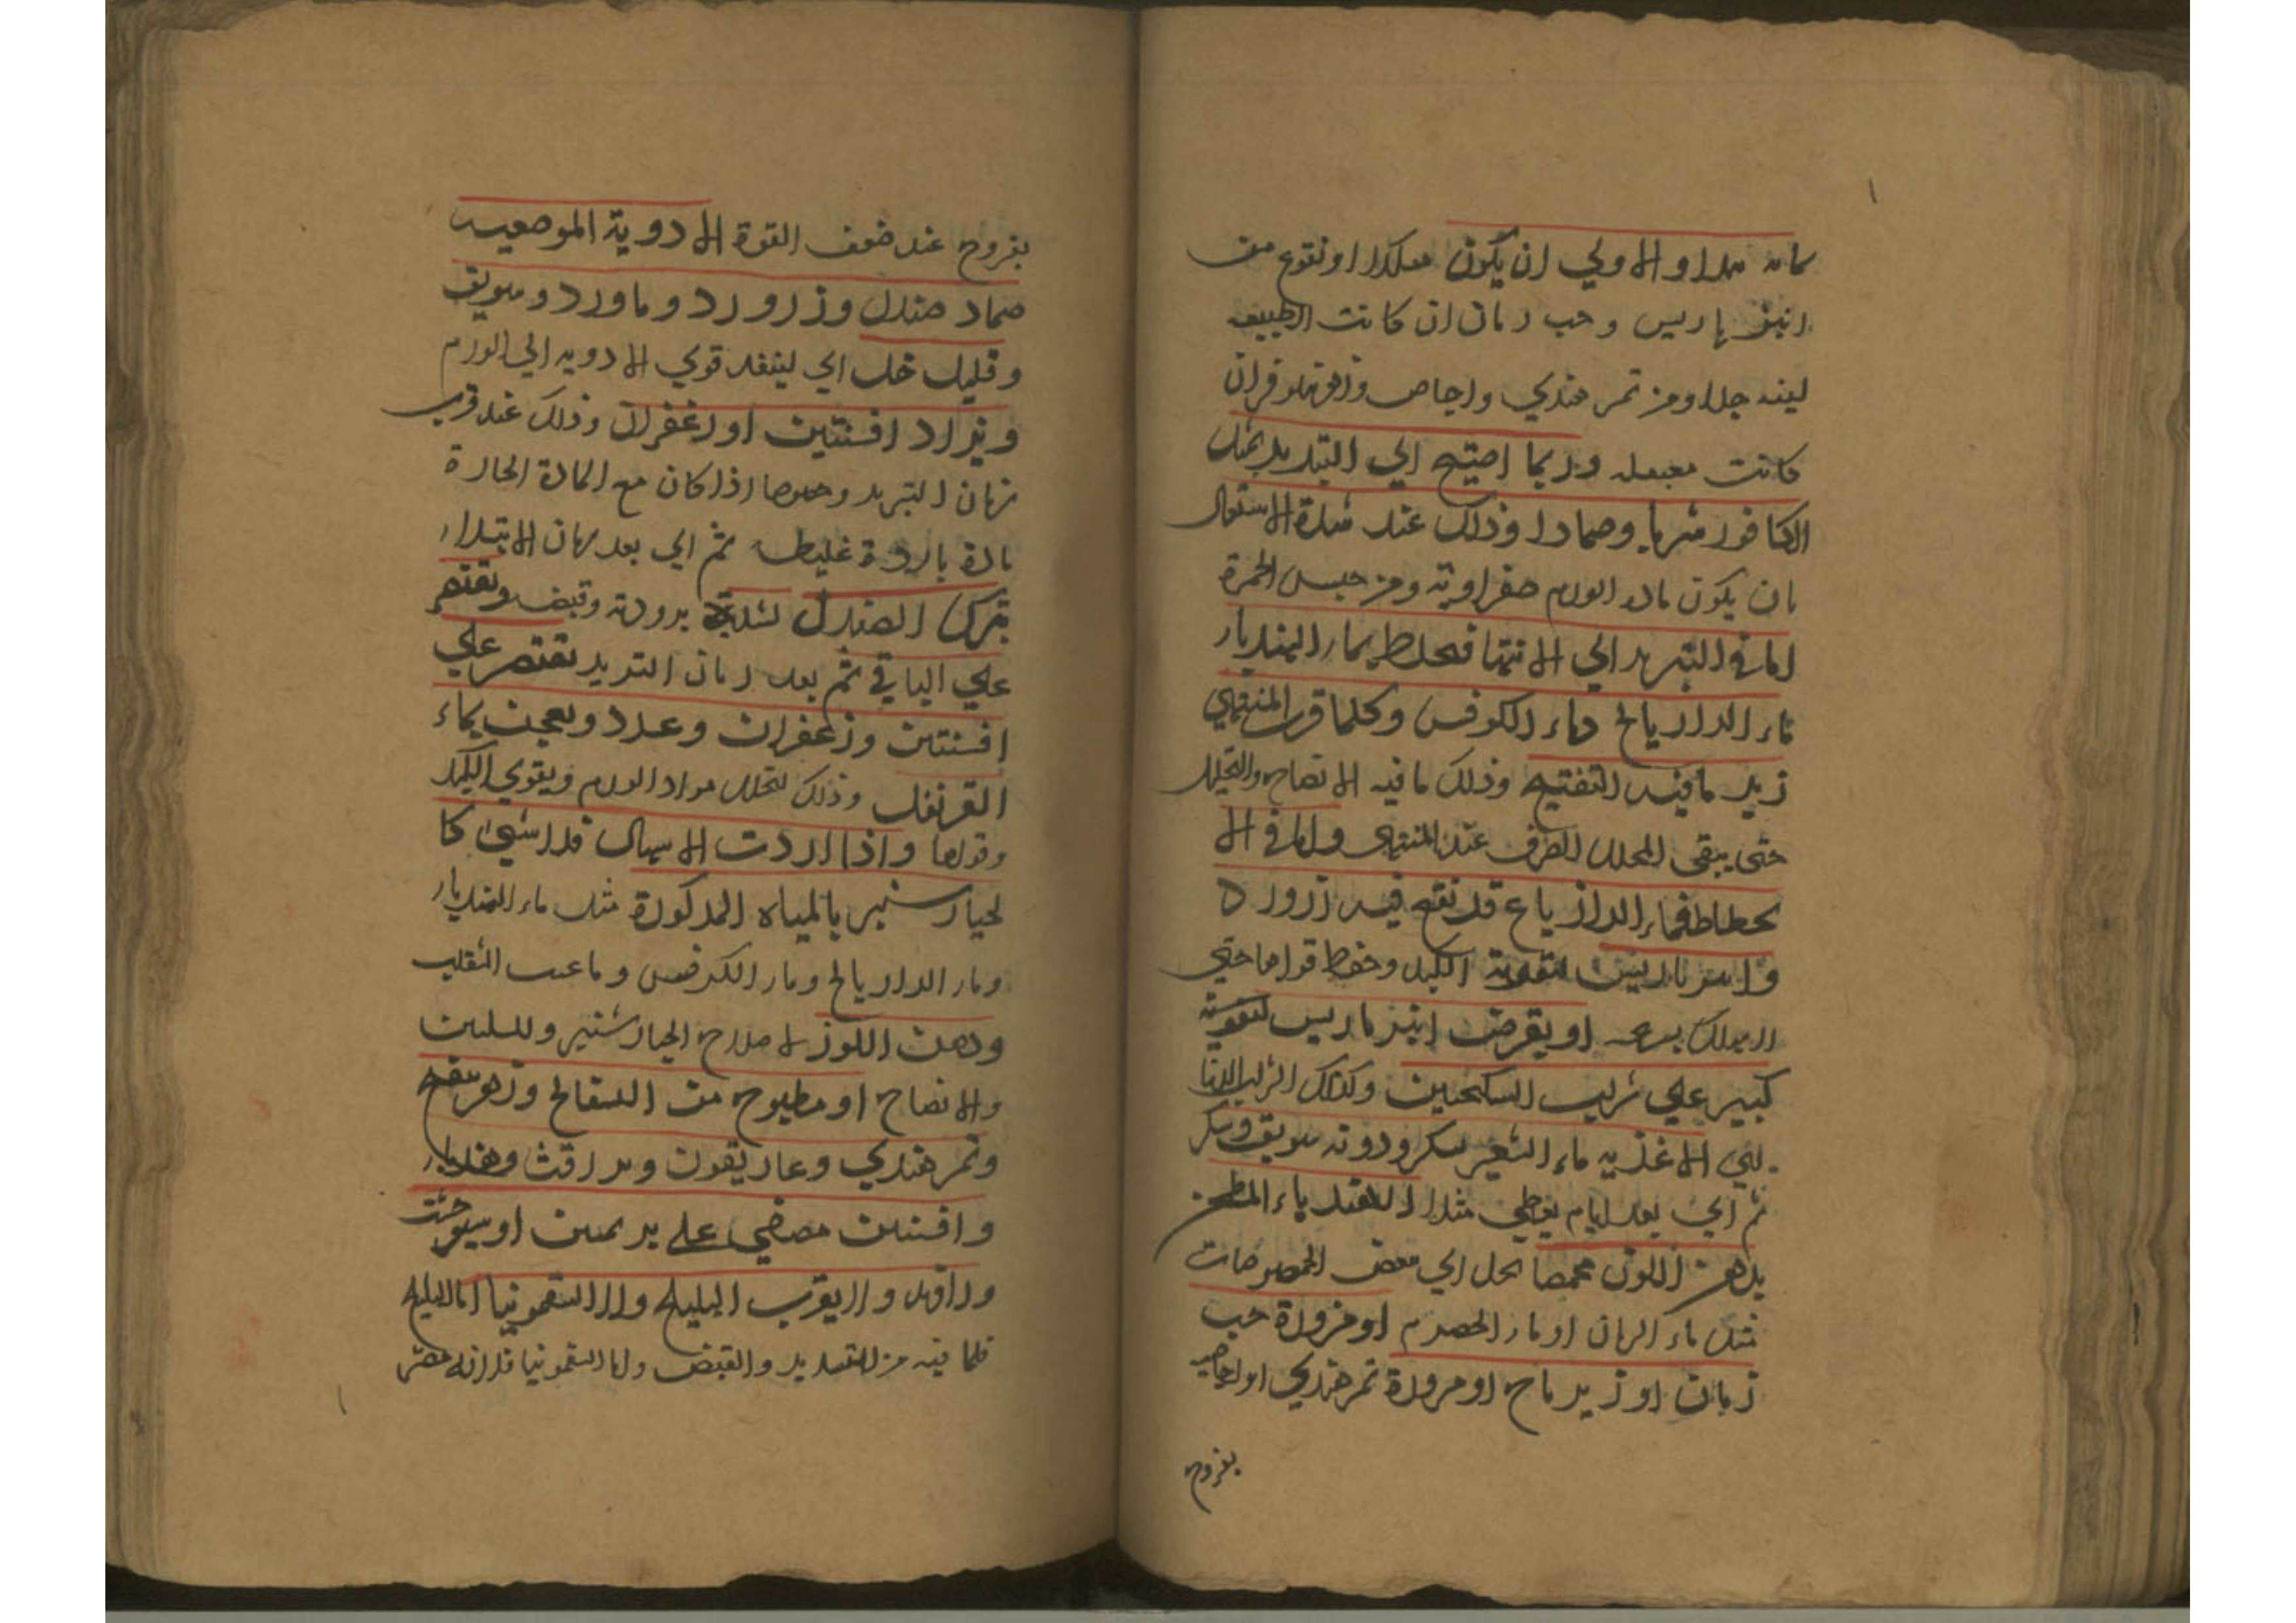 والاولي ان يكون او نقوع من
باريس وحب رمان ان كانت الطبيعه
لينه جدا ومن تمر هندي واجاص
كانت وربما احتيج الي التبريد بمثل
الكافور شربا وضمادا وذلك عند شدة الاشتعال
بان يكون الورم صفراوية ومن جنس الحمرة
اما في التبريد الي الانتها فيخلط بماء الهندباء
ماء الرازيانج وماء الكرفس وكلما قرب المنتهي
زيد ما فيه التفتيح وذلك ما فيه الانضاج والتحليل
حتى يبقى المحلل الصرف عند المنتهي واما في الا
نحطاط فماء الرازيانج قد نقع فيه زرورد
باريس لتقوية الكبد وحفظ قواها حتي
او بقرص انبرباريس لتقوية
كبير علي شراب السكنجبين وكذلك
الاغذيه ماء الشعير بسكر ودونه سويق وسكر
ثم اي بعد ايام يعطي مثل الهندباء المطجن
بدهن اللوز محمضا بخل اي بعض الحموضات
مثل ماء الرمان او ماء الحصرم او مزورة حب
رمان او زيرباج او مزورة تمر هندي او اجاص
بفروج
بفروج عند ضعف القوة الادوية الموضعيه
ضماد صندل وزرورد وماورد وسويق
وقليل خل اي لينفذ قوي الادويه الي الورم
ويزاد افسنتين او زعفران وذلك عند قرب
زمان التزيد وخصوصا اذا كان مع المادة الحارة
مادة باردة غليظه ثم اي بعد زمان الابتداء
يترك الصندل لشدة برودته وقبضه ويقتصر
علي الباقي ثم بعد زمان التزيد يقتصر علي
افسنتين وزعفران ويعجن بماء
القرنفل وذلك لتحلل مواد الورم ويقوي الكبد
وقواها واذا اردت الاسهال فلا شيئ كا
لخيارشنبر بالمياه المذكورة مثل ماء الهندباء
وماء الرازيانج وماء الكرفس وما عنب الثعلب
ودهن اللوز لاصلاح الخيارشنبر وللتليين
والانضاج او مطبوخ من البسفايج وزهر بنفسج
وتمر هندي وغاريقون وهندباء
وافسنتين مصفي علي
ولا يقرب البليلج ولا السقمونيا اما البليلج
فلما فيه من التسديد والقبض واما السقمونيا فلانه مضر